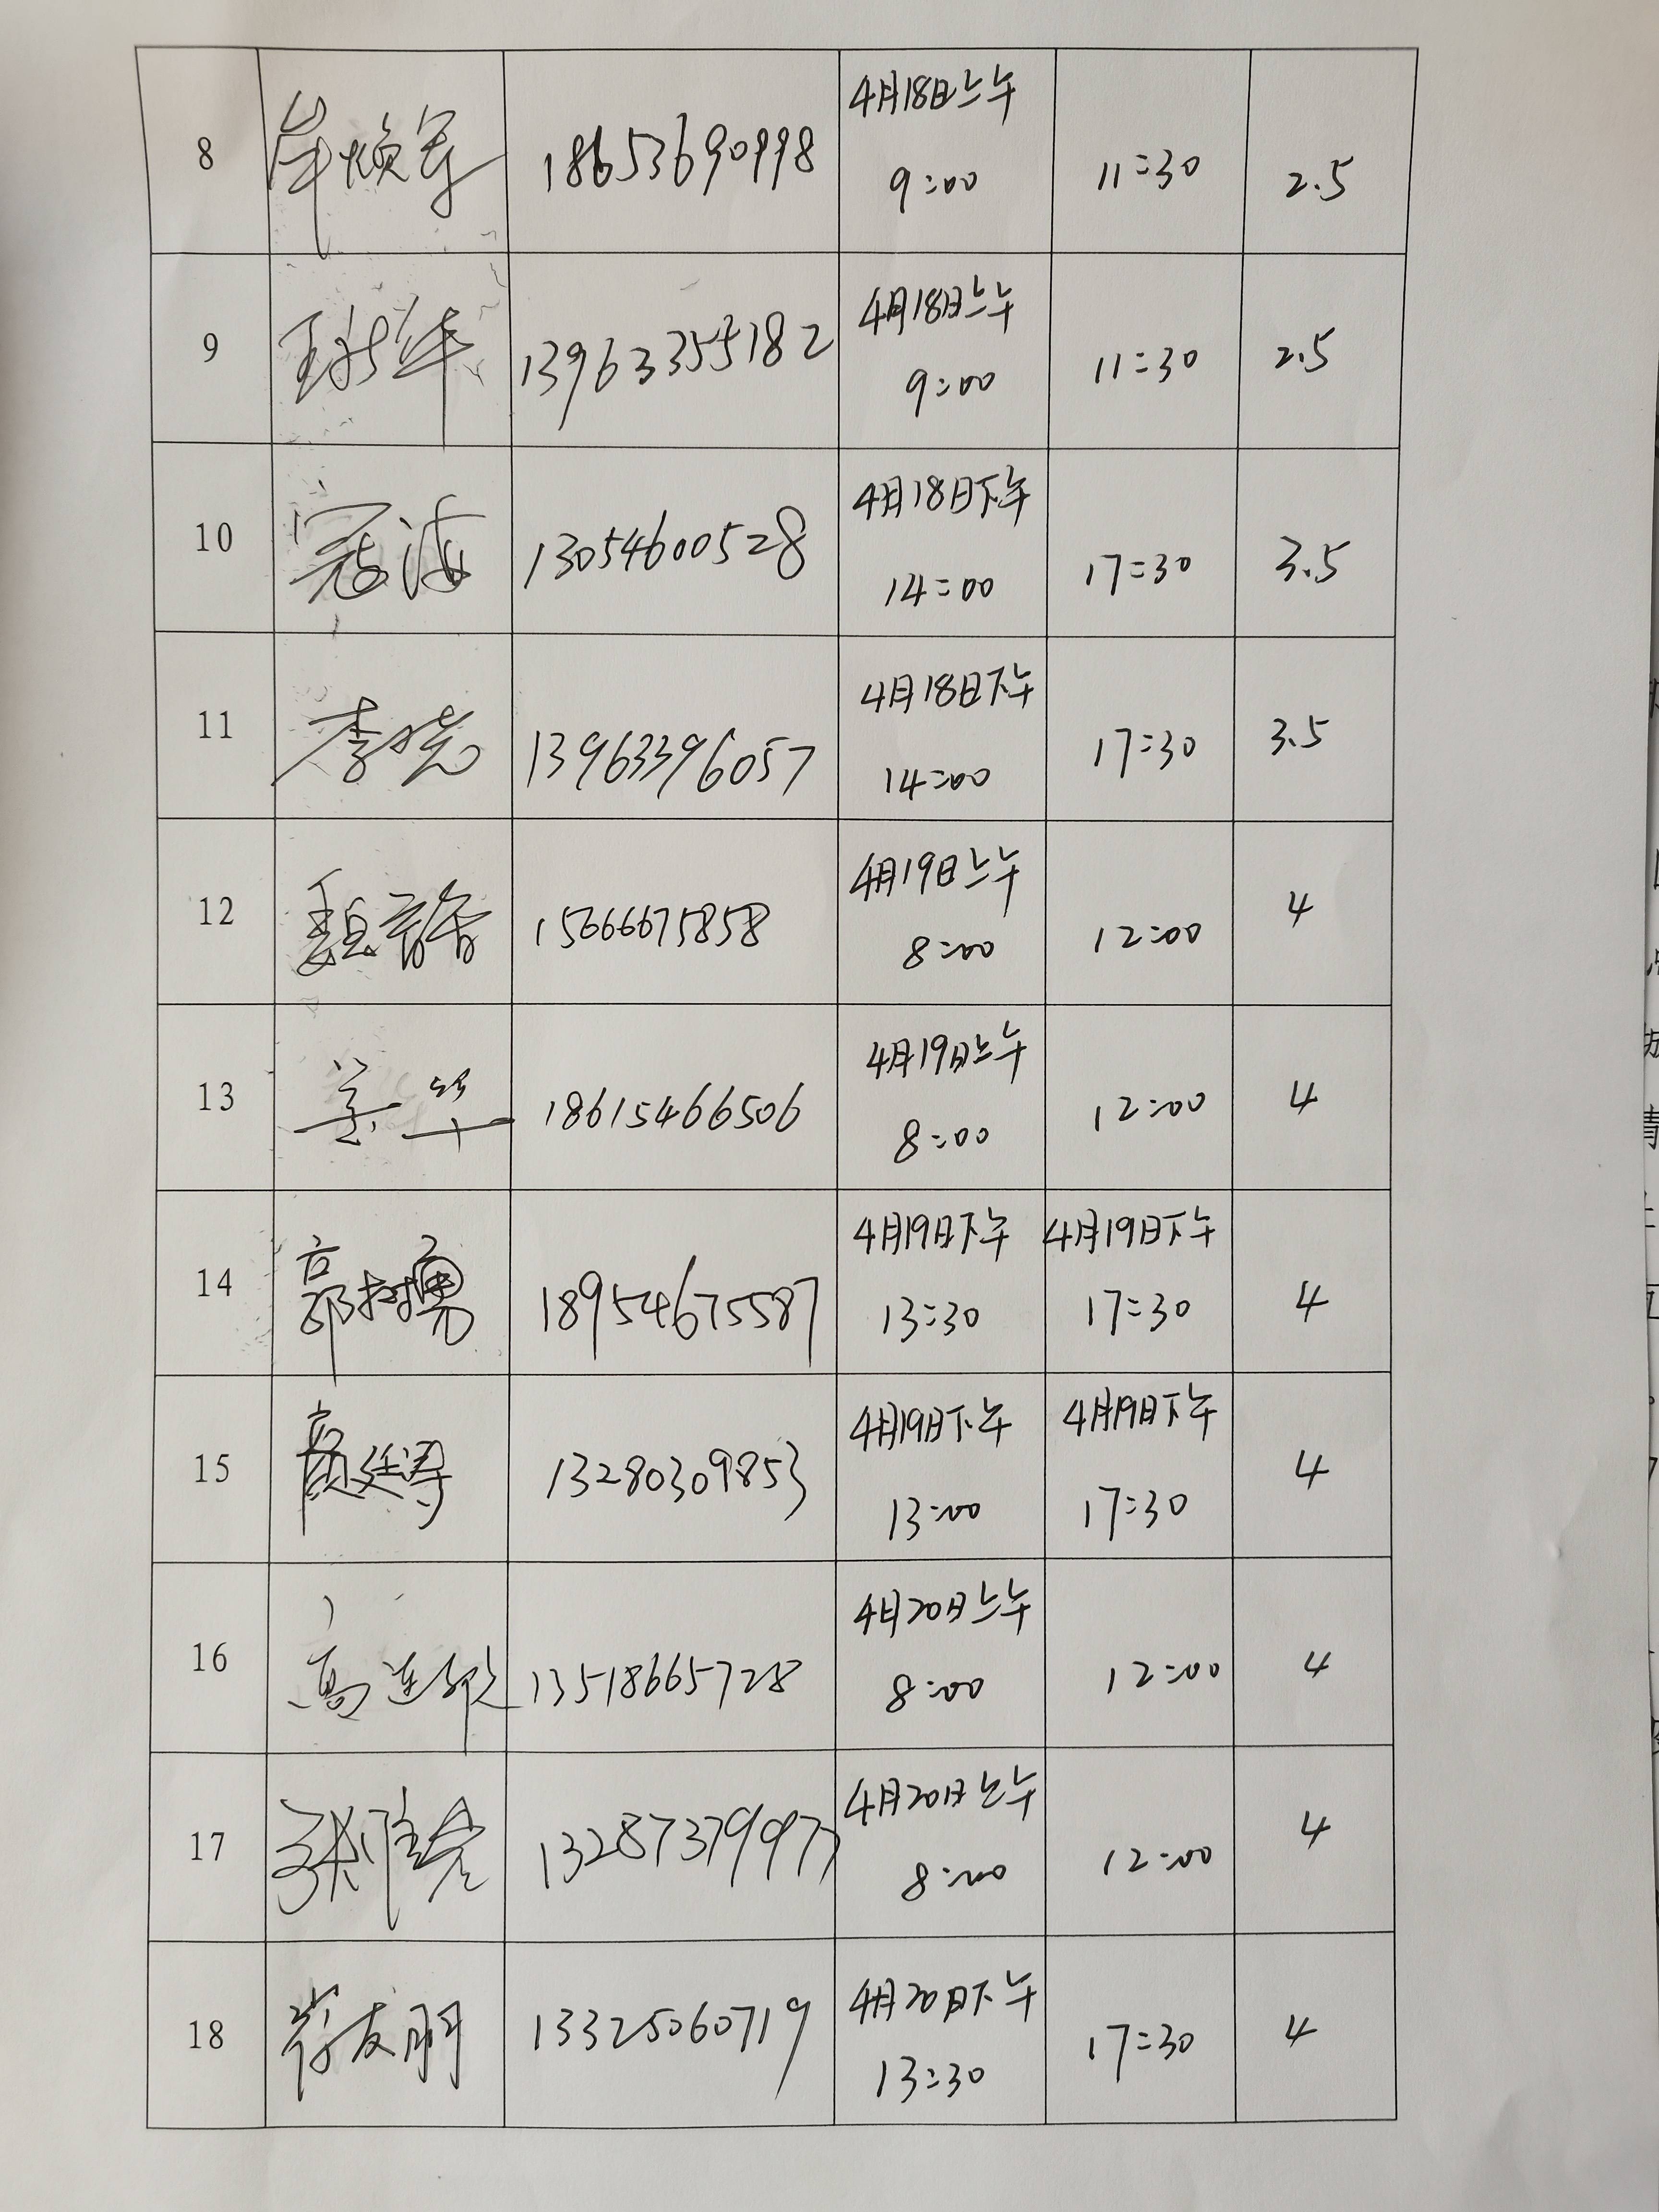 8
18653690998
4月18日上午
9:00
11:30
2.5
9
13963355182
4月18日上午
9:00
11:30
2.5
10
寇海
13054600528
4月18日下午
14:00
17:30
3.5
11
李光
13963396057
4月18日下午
14:00
17:30
3.5
12
15666675858
4月19日上午
8:00
12:00
4
13
姜华
18615466506
4月19日上午
8:00
12:00
4
14
郭树勇
18954675587
4月19日下午
13:30
4月19日下午
17:30
4
15
颜廷涛
13280309853
4月19日下午
13:00
4月19日下午
17:30
4
16
高连
13518665728
4月20日上午
8:00
12:00
4
17
张
13287379977
4月20日上午
8:00
12:00
4
18
友朋
13325060719
4月20日下午
13:30
17:30
4